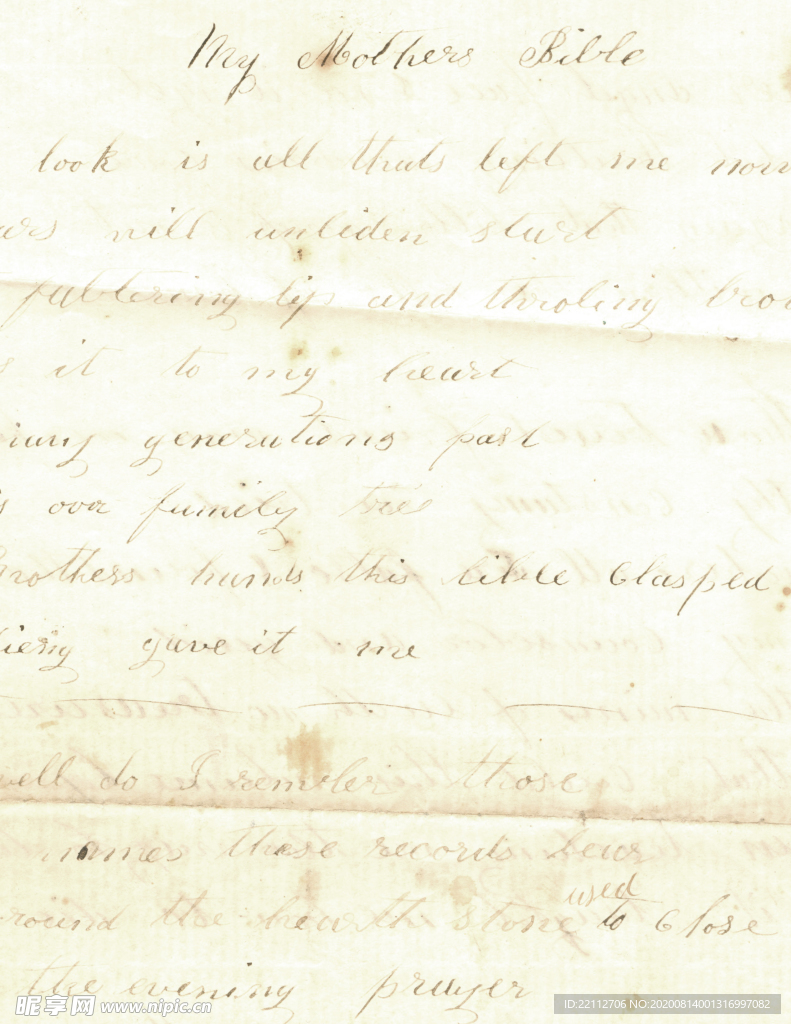 My Mothers Bible
look is all thats left me now
ars will unbiden start
faltering lip and throbing brow
s it to my heart
many generations past
is our family tree
Mothers hands this bible Clasped
dieing gave it me
well do I rember those
names these records bear
round the hearth stone used to Close
the evening prayer
昵享网 www.nipic.cn
ID:22112706 NO:20200814001316997082